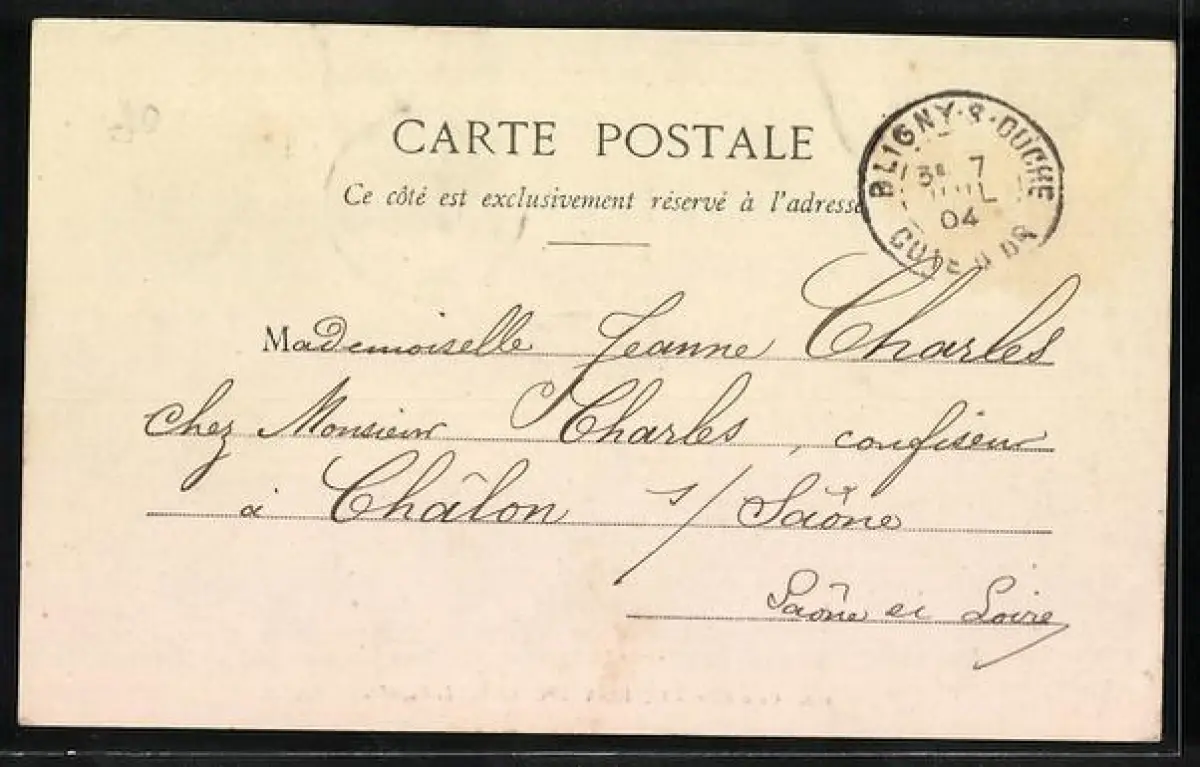 CARTE POSTALE
Ce côté est exclusivement réservé à l'adresse
BLIGNY-S-OUCHE
7
JUIL
04
COTE D'OR
Mademoiselle Jeanne Charles
chez Monsieur Charles, confiseur
à Châlon s/ Saône
Saône et Loire